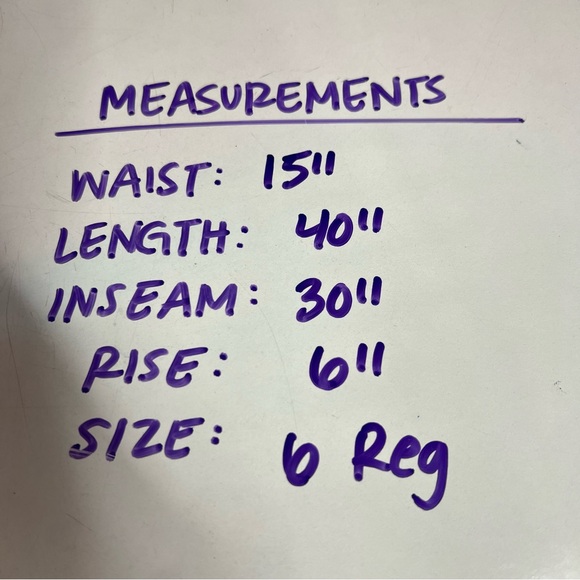 MEASUREMENTS
WAIST: 15"
LENGTH: 40"
INSEAM: 30"
RISE: 6"
SIZE: 6 Reg